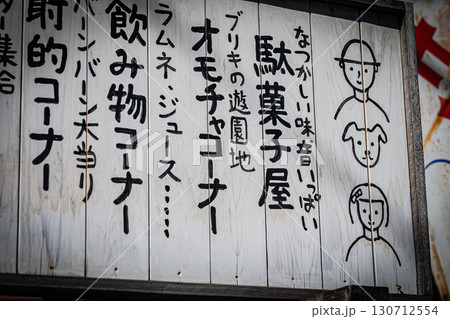 なつかしい味昔いっぱい
駄菓子屋
ブリキの遊園地
オモチャコーナー
ラムネ・ジュース……
飲み物コーナー
バーンバーン大当り
射的コーナー
集合
130712554